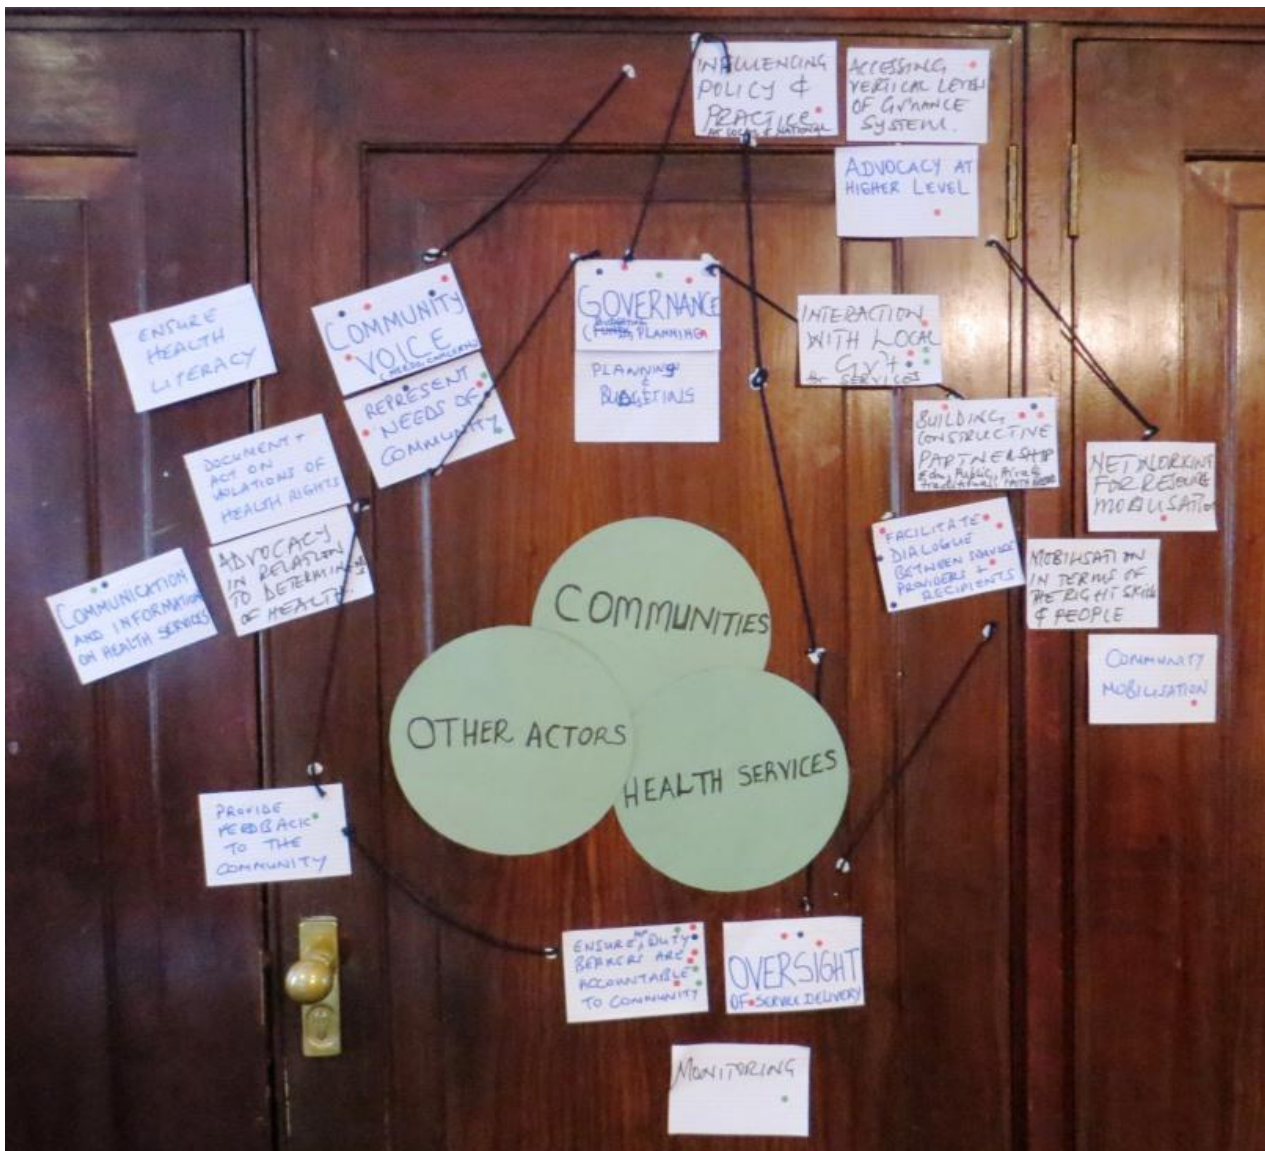 INFLUENCING
POLICY &
PRACTICE
AT LOCAL & NATIONAL
ACCESSING
VERTICAL LEVELS
OF GV'NANCE
SYSTEM.
ADVOCACY AT
HIGHER LEVEL
ENSURE
HEALTH
LITERACY
COMMUNITY
VOICE
(NEEDS, CONCERNS)
REPRESENT
NEEDS OF
COMMUNITY
GOVERNANCE
BUDGETING
PLANNING
PLANNING
&
BUDGETING
INTERACTION
WITH LOCAL
GV'T
& SERVICES
BUILDING
CONSTRUCTIVE
PARTNERSHIP
Edu, Public, Private
traditional, FAITH BASED
NETWORKING
FOR RESOURCE
MOBILISATION
DOCUMENT +
ACT ON
VIOLATIONS OF
HEALTH RIGHTS
ADVOCACY
IN RELATION
TO DETERMINANTS
OF HEALTH.
COMMUNICATION
AND INFORMATION
ON HEALTH SERVICES
FACILITATE
DIALOGUE
BETWEEN SERVICE
PROVIDERS +
RECIPIENTS
MOBILISATION
IN TERMS OF
THE RIGHT SKILLS
& PEOPLE
COMMUNITY
MOBILISATION
COMMUNITIES
OTHER ACTORS
HEALTH SERVICES
PROVIDE
FEEDBACK
TO THE
COMMUNITY
ENSURE DUTY
BEARERS ARE
ACCOUNTABLE
TO COMMUNITY
OVERSIGHT
OF SERVICE DELIVERY
MONITORING